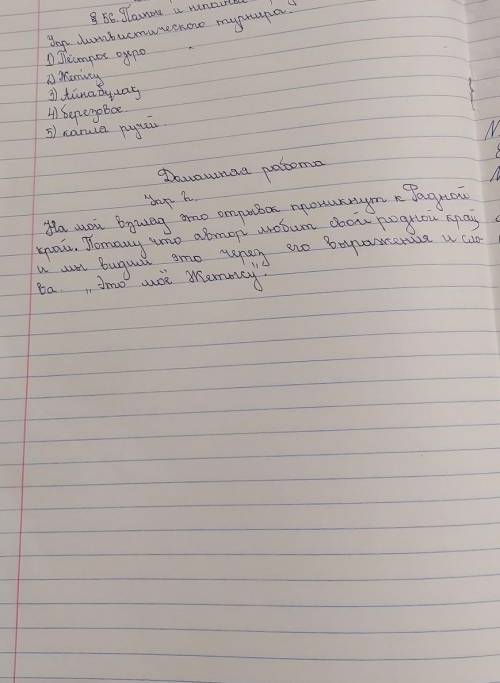 § 56. Полные и неполные
Упр. Лингвистического турнира.
1) Пёстрое озеро
2) Жетісу
3) Айнабұлақ
4) Березовое
5) капля ручей.
Домашная работа
Упр 2.
На мой взгляд это отрывок проникнут к Радной
край. Потому что автор любит свой родной край
и мы видим это через его выражения и сло-
ва. „Это моё Жетысу".